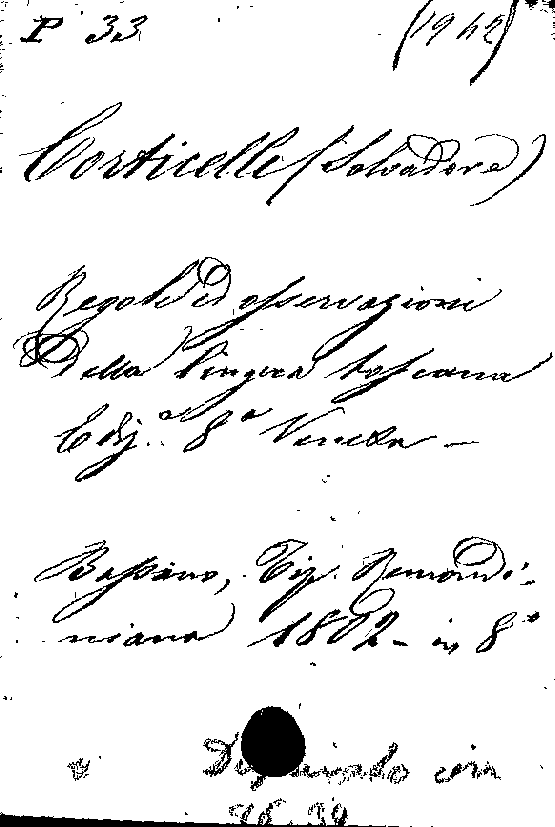 P 33 (1942)
Corticelli (Salvadore)
Regole ed osservazioni
Della lingua toscana
Ediz.a 8a Veneta -
Bassano, Tip. Remondi-
niana 1802 - in 8°
con